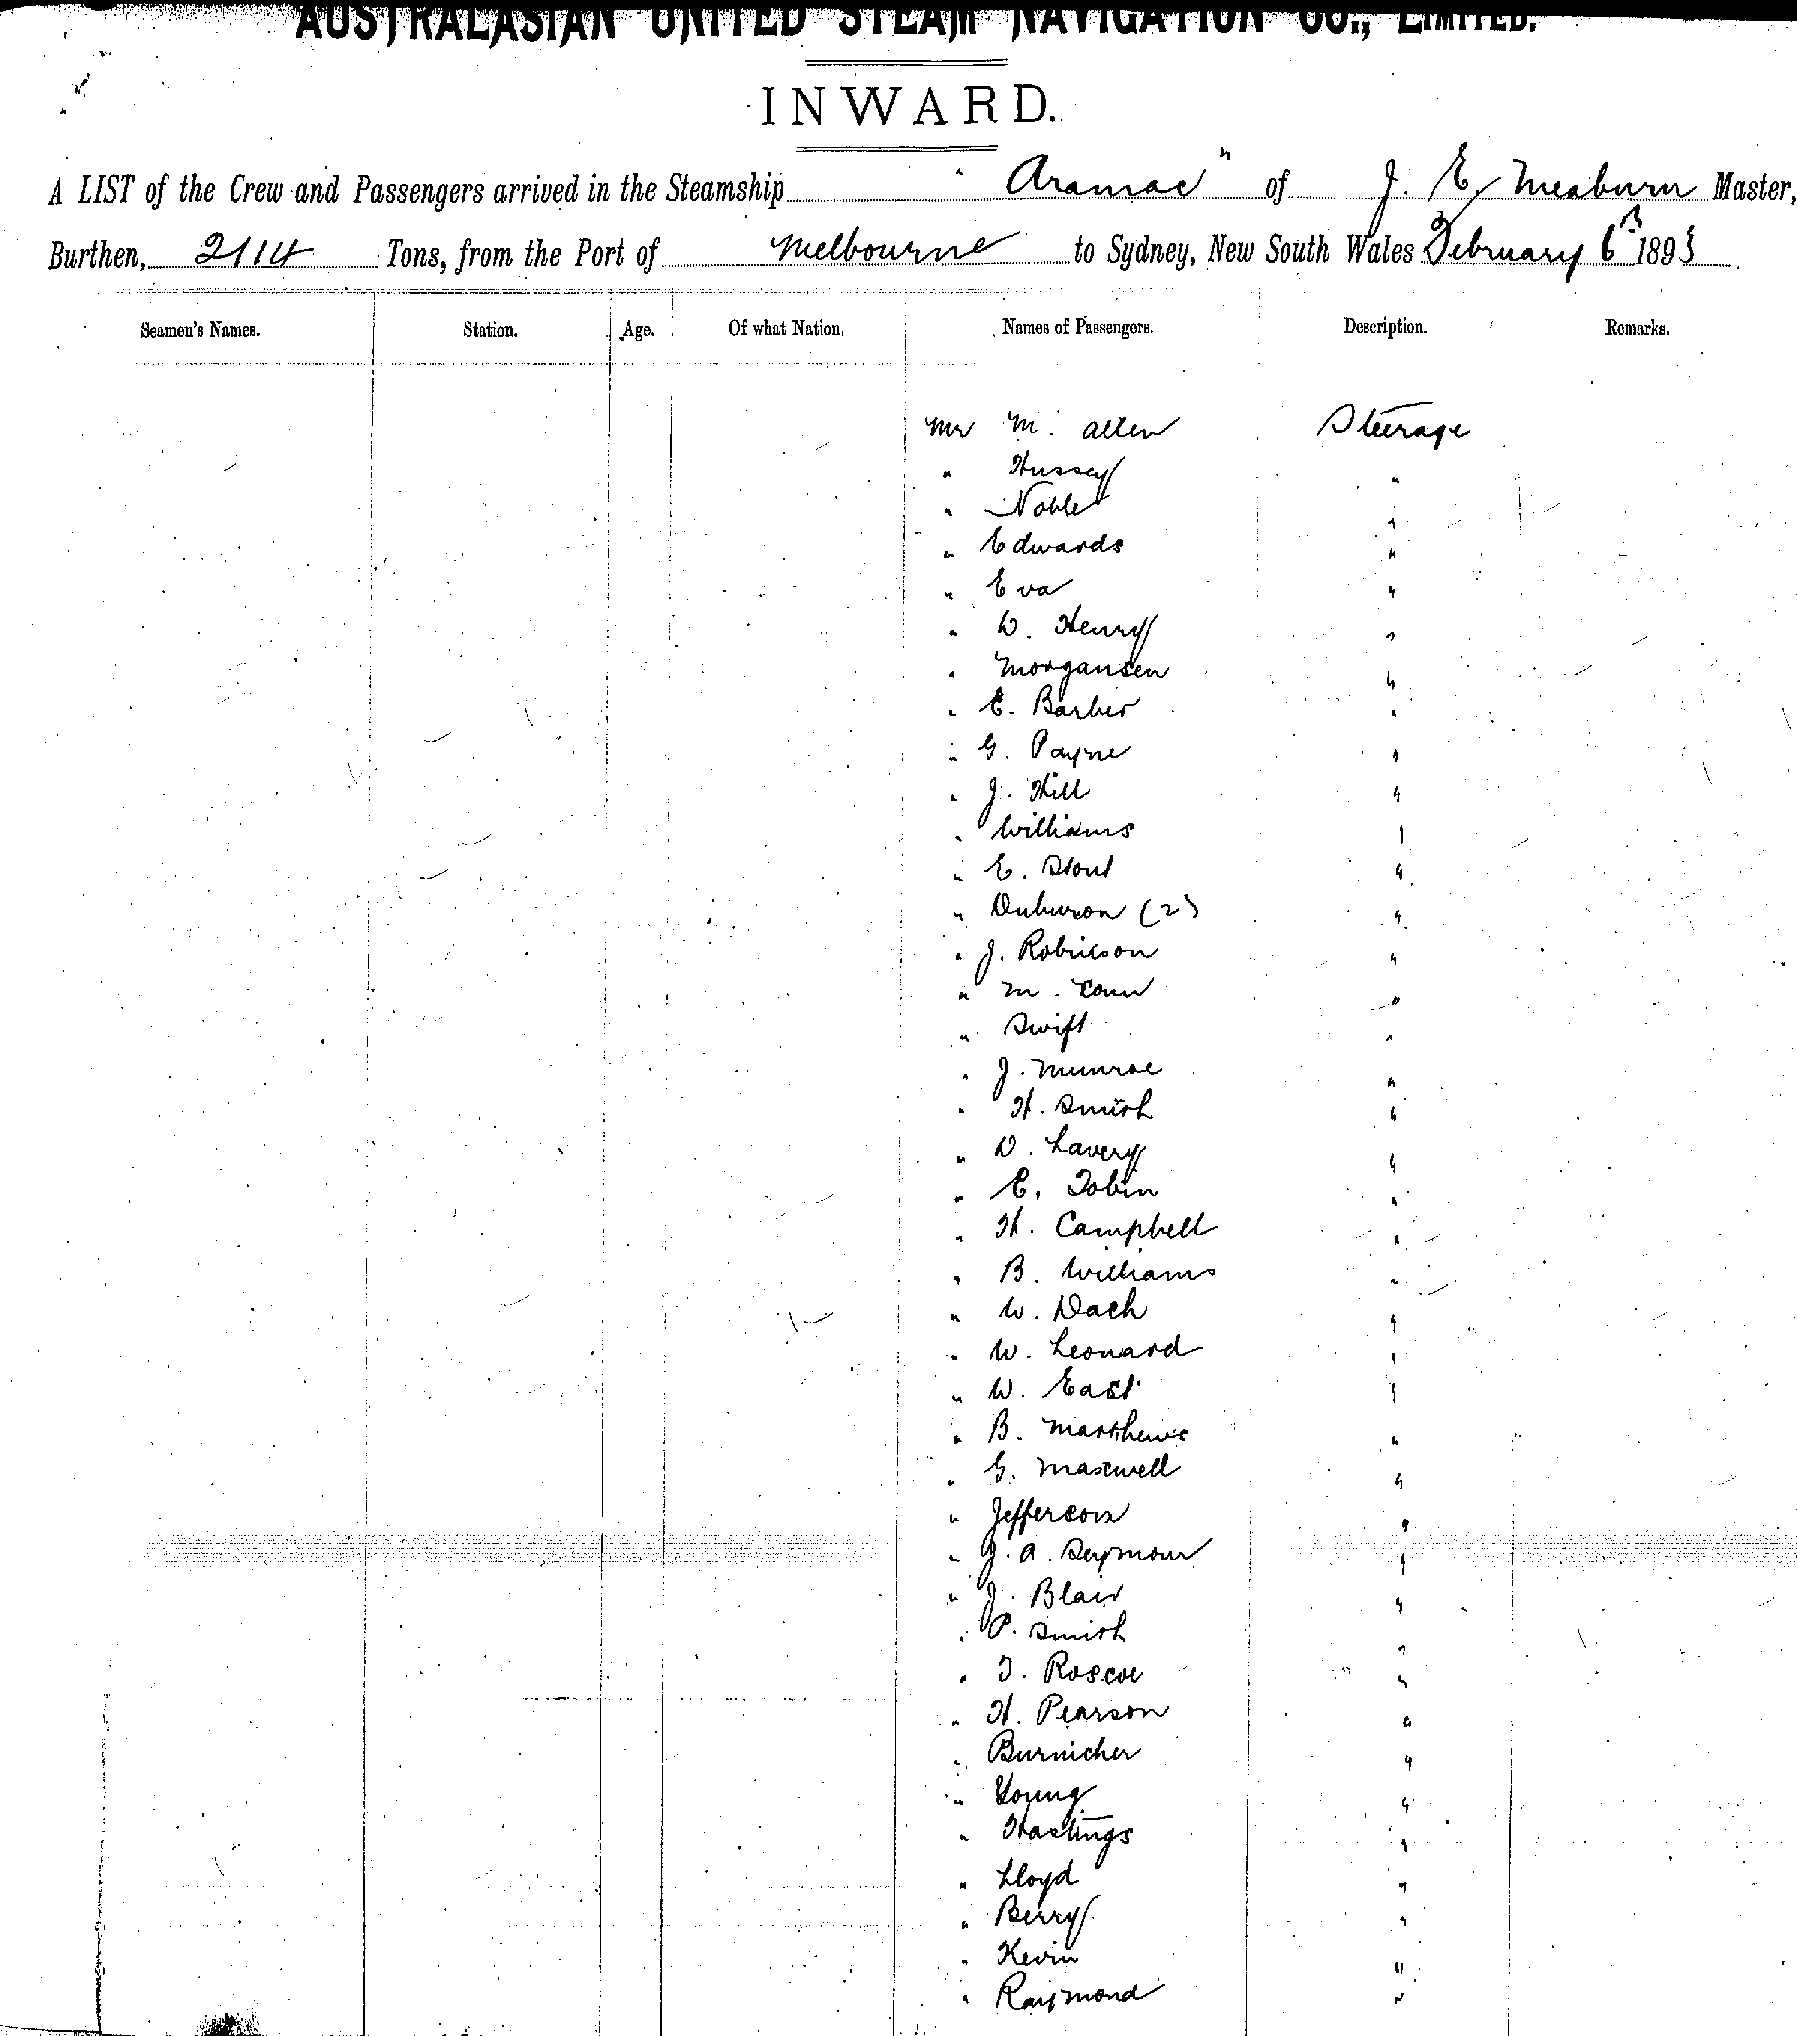 AUSTRALASIAN UNITED STEAM NAVIGATION CO., LIMITED.
INWARD.
A LIST of the Crew and Passengers arrived in the Steamship "Aramac" of J. E. Meaburn Master,
Burthen, 2114 Tons, from the Port of Melbourne to Sydney, New South Wales February 6th 1893
Seamen's Names. Station. Age. Of what Nation. Names of Passengers. Description. Remarks.
Mr M. Allen Steerage
" Hussey "
" Noble "
" Edwards "
" Eva "
" W. Henry "
" Morgansen "
" E. Barber "
" G. Payne "
" J. Hill "
" Williams "
" E. Stout "
" (2) "
" J. Robinson "
" M. "
" Swift "
" J. Munroe "
" H. Smith "
" D. Lavery "
" E. Tobin "
" H. Campbell "
" B. Williams "
" W. Dach "
" W. Leonard "
" W. East "
" B. Matthews "
" G. Maxwell "
" Jefferson "
" J. A. Seymour "
" J. Blair "
" P. Smith "
" T. Roscoe "
" H. Pearson "
" Burnicher "
" Young "
" Hastings "
" Lloyd "
" Berry "
" Kevin "
" Raymond "